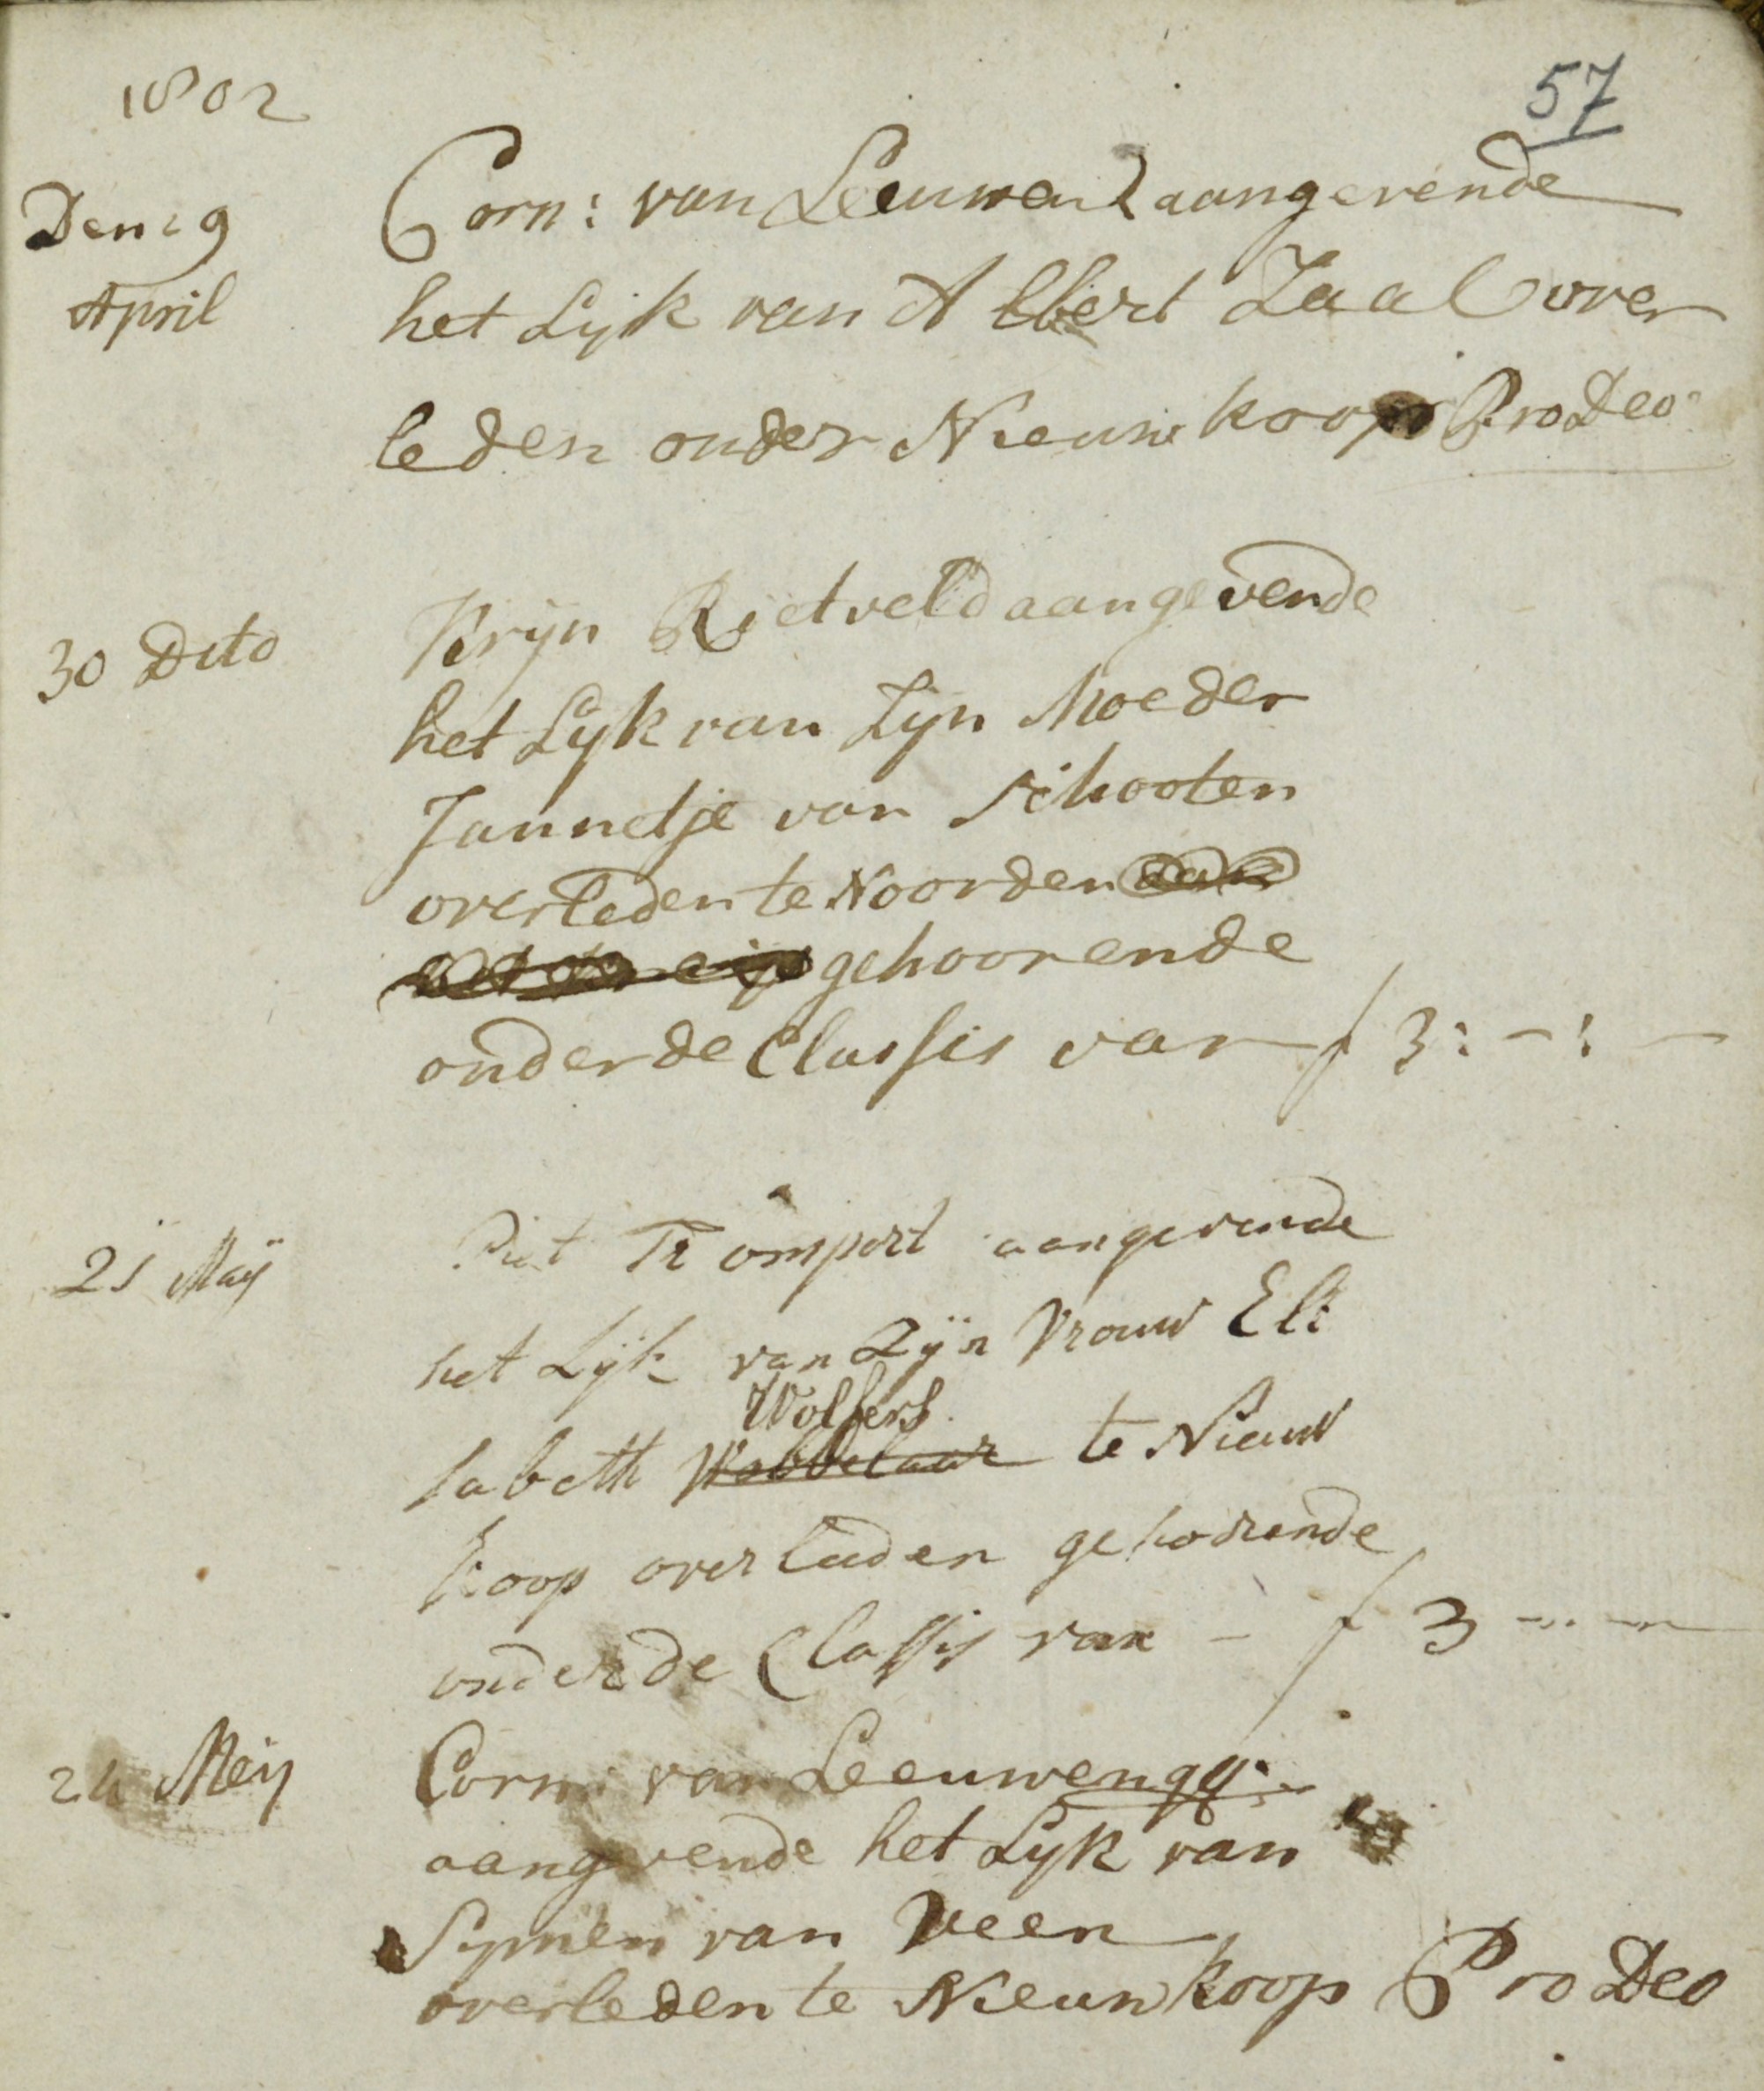 1802
57
Den 29 Corn: van Leeuwen aangevende
April het Lijk van Albert Zaal over
leden onder Nieuwkoop Pro Deo
30 Dito Krijn Rietveld aangevende
het Lijk van Zijn Moeder
Jannetje van Schooten
overleden te Noorden
gehoorende
onder de Classis van f 3:-:-
21 Maÿ Piet Trompert aangevende
het Lijk van Zÿn Vrouw Eli
Wolfers
sabeth Wobbelaar te Nieuw
koop overleeden gehoorende
onder de Classis van - f 3 -..-
24 Meij Corn: van Leeuwen qq.
aangevende het Lijk van
Sijmen van Veen
overleden te Nieuwkoop Pro Deo